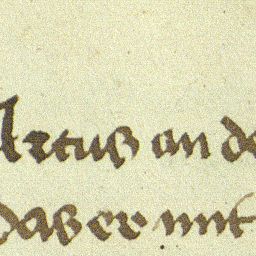 Artus an de
das er mit